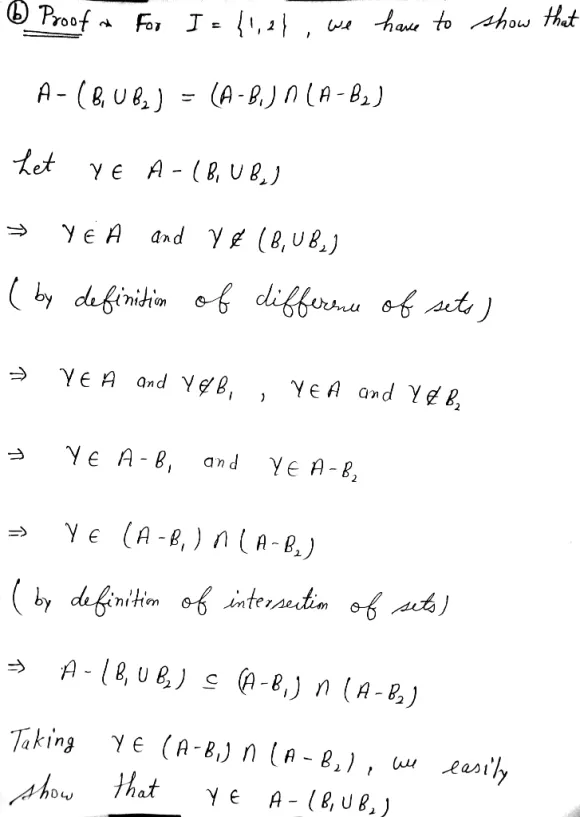 ⓑ Proof → For I = {1,2}, we have to show that
A - (B₁ ∪ B₂) = (A-B₁) ∩ (A-B₂)
Let γ ∈ A - (B₁ ∪ B₂)
⇒ γ ∈ A and γ ∉ (B₁ ∪ B₂)
( by definition of difference of sets )
⇒ γ ∈ A and γ ∉ B₁ , γ ∈ A and γ ∉ B₂
⇒ γ ∈ A - B₁ and γ ∈ A - B₂
⇒ γ ∈ (A - B₁) ∩ (A - B₂)
( by definition of intersection of sets )
⇒ A - (B₁ ∪ B₂) ⊆ (A-B₁) ∩ (A-B₂)
Taking γ ∈ (A-B₁) ∩ (A - B₂), we easily
show that γ ∈ A - (B₁ ∪ B₂)